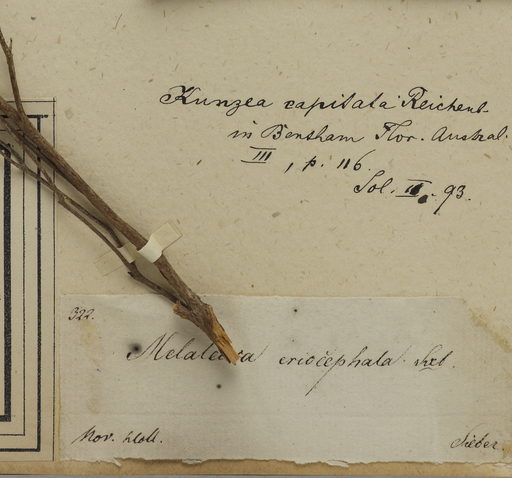 Kunzea capitata Reichenb.
in Bentham Flor. Austral.
III, p. 116.
Sol. II. 93.
322.
Melaleuca eriocephala Sieb.
Nov. Holl.
Sieber.